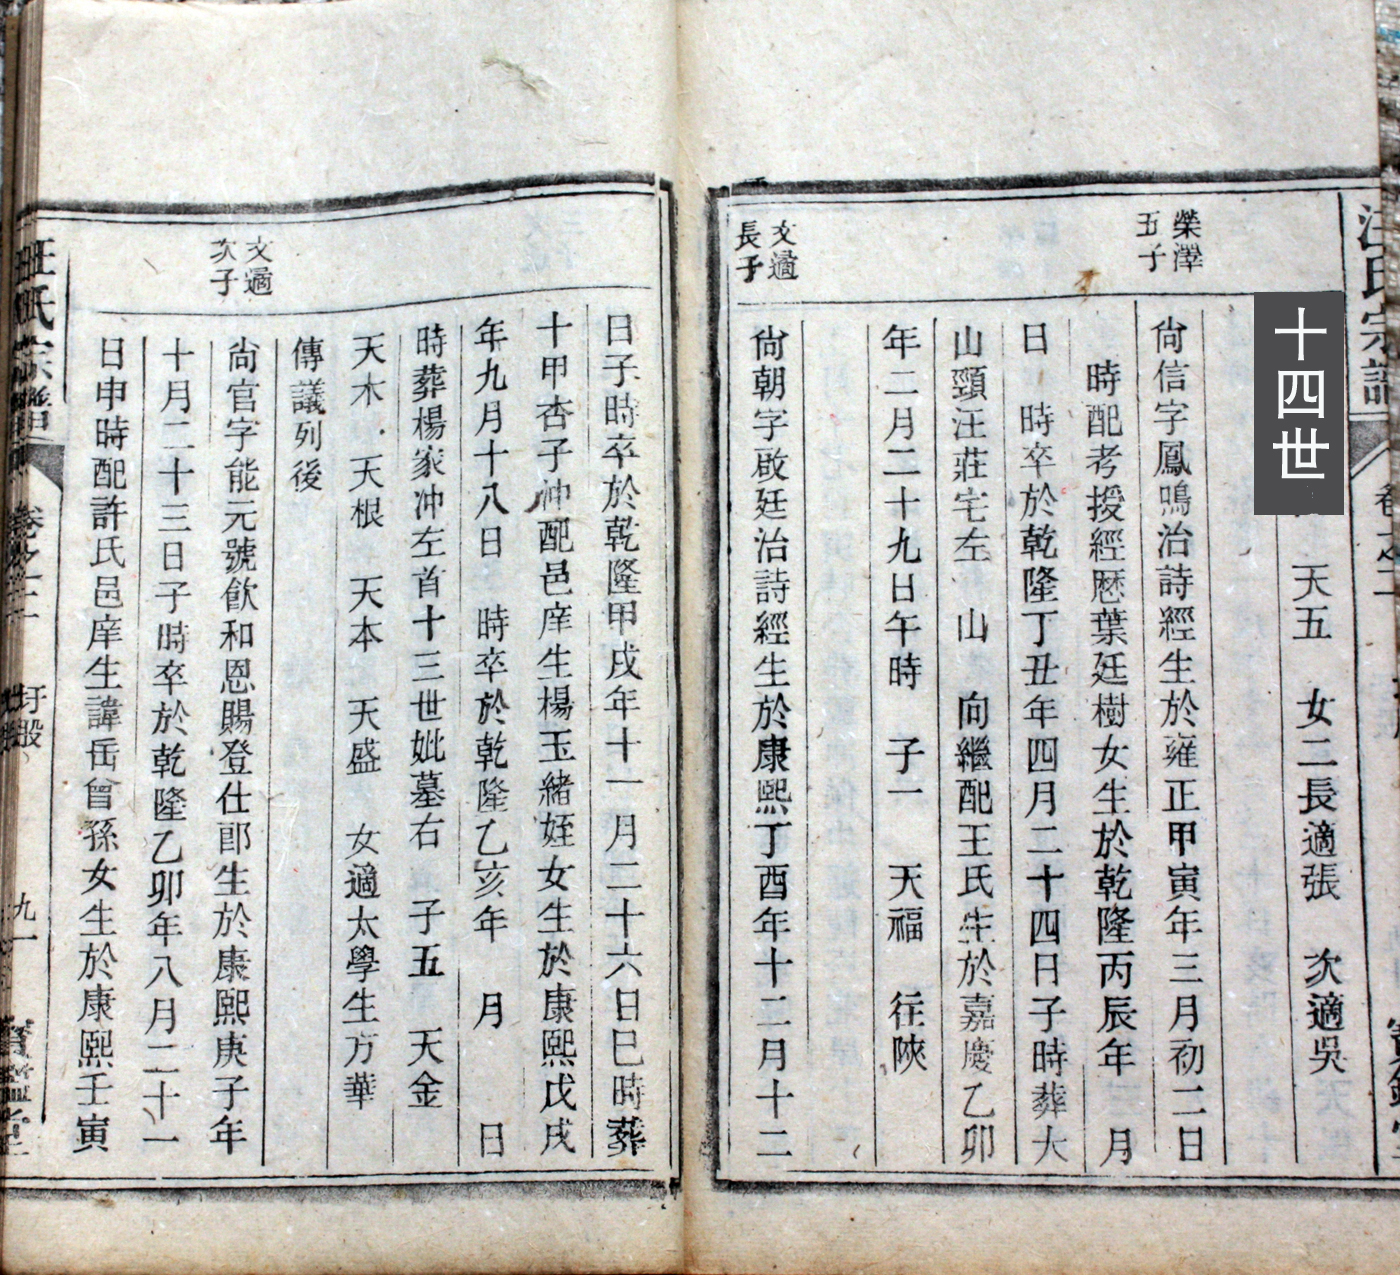 汪氏宗譜
卷之二
十四世
天五　女二長適張　次適吳
榮澤
五子
尙信字鳳鳴治詩經生於雍正甲寅年三月初二日
時配考授經歷葉廷樹女生於乾隆丙辰年　月
日　時卒於乾隆丁丑年四月二十四日子時葬大
山頸汪莊宅左　山　向繼配王氏生於嘉慶乙卯
年二月二十九日午時　子一　天福　往陝
文適
長子
尙朝字啟廷治詩經生於康熙丁酉年十二月十二
日子時卒於乾隆甲戌年十一月二十六日巳時葬
十甲杏子冲配邑庠生楊玉緒姪女生於康熙戊戌
年九月十八日　時卒於乾隆乙亥年　月　日
時葬楊家冲左首十三世妣墓右　子五　天金
天木　天根　天本　天盛　女適太學生方華
傳議列後
文適
次子
尙官字能元號飲和恩賜登仕郎生於康熙庚子年
十月二十三日子時卒於乾隆乙卯年八月二十一
日申時配許氏邑庠生諱岳曾孫女生於康熙壬寅
汪氏宗譜
卷之二
九一